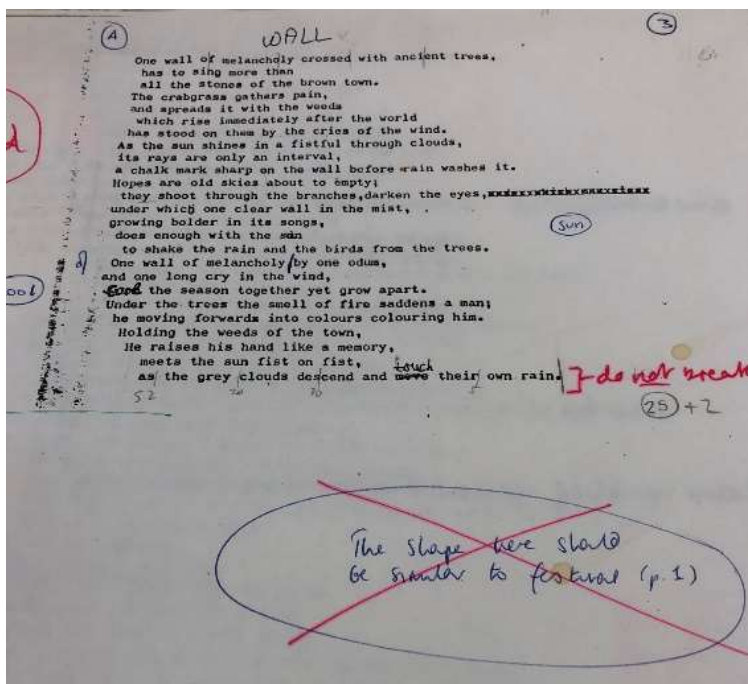 4
WALL
3
One wall of melancholy crossed with ancient trees,
has to sing more than
all the stones of the brown town.
The crabgrass gathers pain,
and spreads it with the weeds
which rise immediately after the world
has stood on them by the cries of the wind.
As the sun shines in a fistful through clouds,
its rays are only an interval,
a chalk mark sharp on the wall before rain washes it.
Hopes are old skies about to empty;
they shoot through the branches,darken the eyes,
under which one clear wall in the mist,
growing bolder in its songs,
does enough with the sun
sun
to shake the rain and the birds from the trees.
One wall of melancholy by one odum,
and one long cry in the wind,
the season together yet grow apart.
Under the trees the smell of fire saddens a man;
he moving forwards into colours colouring him.
Holding the weeds of the town,
He raises his hand like a memory,
meets the sun fist on fist,
touch
as the grey clouds descend and move their own rain.
do not break
52
25 + 2
The shape here should
be similar to festival (p.1)